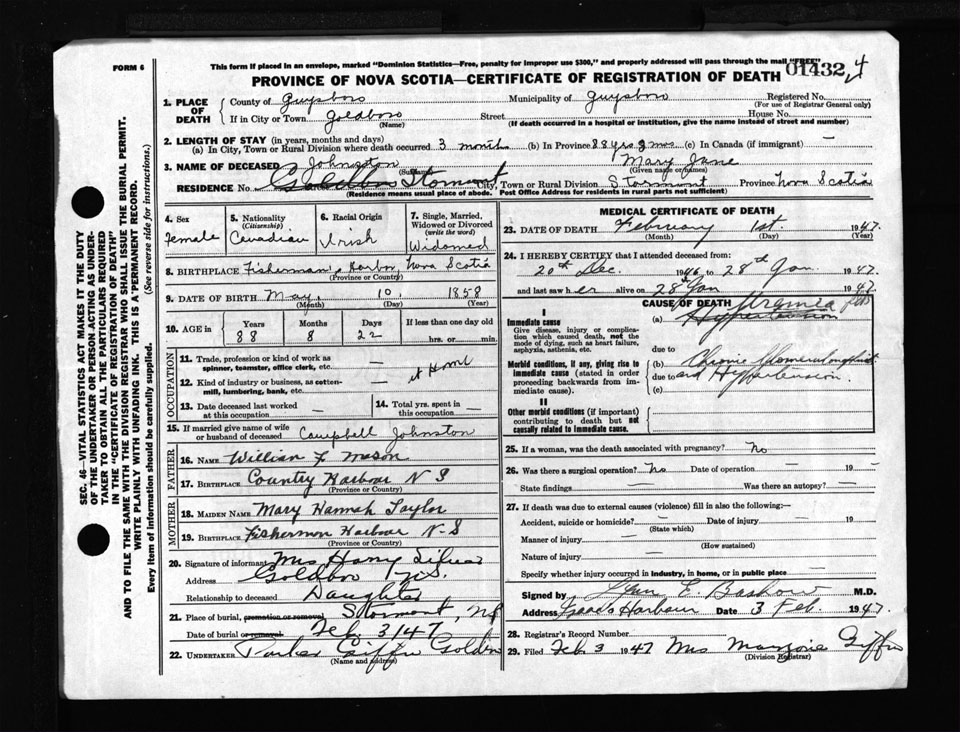 FORM 6
This form if placed in an envelope, marked "Dominion Statistics—Free, penalty for improper use $300," and properly addressed will pass through the mail "FREE"
PROVINCE OF NOVA SCOTIA—CERTIFICATE OF REGISTRATION OF DEATH
014324
1. PLACE OF DEATH
County of Guysboro Municipality of Guysboro Registered No.
(For use of Registrar General only)
If in City or Town Goldboro Street House No.
(Name) (If death occurred in a hospital or institution, give the name instead of street and number)
2. LENGTH OF STAY (in years, months and days)
(a) In City, Town or Rural Division where death occurred 3 months (b) In Province 88 yrs 9 mos (c) In Canada (if immigrant) —
3. NAME OF DECEASED Johnston Mary Jane
(Surname) (Given name or names)
RESIDENCE No. Stormont City, Town or Rural Division Stormont Province Nova Scotia
(Residence means usual place of abode. Post Office Address for residents in rural parts not sufficient)
4. Sex
Female
5. Nationality
(Citizenship)
Canadian
6. Racial Origin
Irish
7. Single, Married, Widowed or Divorced
(write the word)
Widowed
8. BIRTHPLACE Fisherman Harbor, Nova Scotia
(Province or Country)
9. DATE OF BIRTH May 10 1858
(Month) (Day) (Year)
10. AGE in
Years Months Days If less than one day old
88 8 22 hrs. or min.
OCCUPATION
11. Trade, profession or kind of work as spinner, teamster, office clerk, etc. — at Home
12. Kind of industry or business, as cotton-mill, lumbering, bank, etc. —
13. Date deceased last worked at this occupation —
14. Total yrs. spent in this occupation —
15. If married give name of wife or husband of deceased Campbell Johnston
FATHER
16. NAME William F Mason
17. BIRTHPLACE Country Harbour N S
(Province or Country)
MOTHER
18. MAIDEN NAME Mary Hannah Taylor
19. BIRTHPLACE Fishermon Harbour N-S
(Province or Country)
20. Signature of informant Mrs Harry
Address Goldboro N.S.
Relationship to deceased Daughter
21. Place of burial, cremation or removal Stormont, NS
Date of burial or removal Feb. 3/47
22. UNDERTAKER Parker Giffin Goldboro
(Name and address)
MEDICAL CERTIFICATE OF DEATH
23. DATE OF DEATH February 1st. 1947.
(Month) (Day) (Year)
24. I HEREBY CERTIFY that I attended deceased from:
20th Dec. 1946 to 28th Jan 1947.
and last saw her alive on 28th Jan 1947.
CAUSE OF DEATH
I
Immediate cause
Give disease, injury or complication which caused death, not the mode of dying, such as heart failure, asphyxia, asthenia, etc.
(a) Uraemia
Hypertension
due to
Morbid conditions, if any, giving rise to immediate cause (stated in order proceeding backwards from immediate cause).
(b) Chronic Glomerulonephritis
due to and Hypertension.
(c)
II
Other morbid conditions (if important) contributing to death but not causally related to immediate cause.
25. If a woman, was the death associated with pregnancy? No
26. Was there a surgical operation? No Date of operation — 19 —
State findings — Was there an autopsy? —
27. If death was due to external causes (violence) fill in also the following:—
Accident, suicide or homicide? — Date of injury — 19
(State which)
Manner of injury —
(How sustained)
Nature of injury —
Specify whether injury occurred in industry, in home, or in public place —
Signed by E. M.D.
Address Isaacs Harbour Date 3 Feb. 1947.
28. Registrar's Record Number
29. Filed Feb 3 1947 Mrs Marjorie Giffin
(Division Registrar)
SEC. 46—VITAL STATISTICS ACT MAKES IT THE DUTY
OF THE UNDERTAKER OR PERSON ACTING AS UNDERTAKER TO OBTAIN ALL THE PARTICULARS REQUIRED
IN THE "CERTIFICATE OF REGISTRATION OF DEATH"
AND TO FILE THE SAME WITH THE DIVISION REGISTRAR WHO SHALL ISSUE THE BURIAL PERMIT.
WRITE PLAINLY WITH UNFADING INK. THIS IS A PERMANENT RECORD.
Every item of information should be carefully supplied. (See reverse side for instructions.)